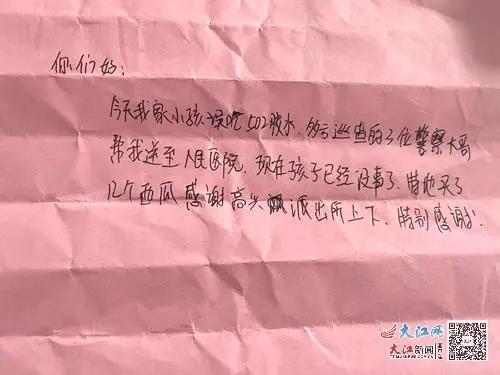 你们好：
今天我家小孩误吃502胶水，多亏巡查的3位警察大哥
帮我送至人民医院，现在孩子已经没事了，特地买了
12个西瓜感谢高兴派出所上下，特别感谢！
大江网
大江新闻